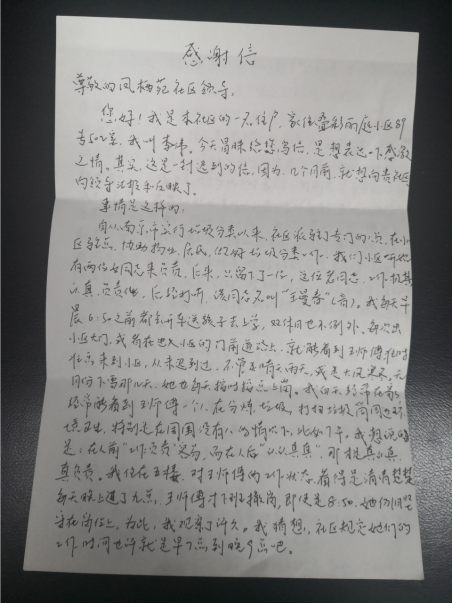 感谢信
尊敬的凤栖苑社区领导，
您好！我是本社区的一名住户，家住叠彩雨庭小区8
号502室，我叫李伟。今天冒昧给您写信，是想表达一下感激
之情。其实，这是一封迟到的信，因为，几个月前，就想向贵社区
向领导汇报和反映了。
事情是这样的：
自从南京市实行垃圾分类以来，社区派驻了专门的人员，在小
区驻点，协助物业、居民，做好垃圾分类工作。我们小区开始
有两位女同志来负责，后来，只留了一位，这位老同志，工作极其
认真，负责任，后经打听，该同志名叫“王曼香”（音）。我每天早
晨6:50之前都要开车送孩子去上学，双休日也不例外，每次出
小区大门，或者在进入小区的门前道路上，就能看到王师傅准时
来到小区，从未迟到过，不管是晴天雨天，或是大风寒冬，元
月份下雪那几天，她也每天按时按点上岗。我白天经常在家，
经常能看到王师傅一个人，在分拣垃圾，打扫垃圾筒周边环
境卫生，特别是在周围没有人的情况下，比如下午。我想说的
是：在人前“工作负责”容易，而在人后“认认真真”，那极其真认真，
真负责。我住在五楼，对王师傅的工作状态，看得是清清楚楚
每天晚上过了九点，王师傅才下班撤岗，即使是8:50，她仍旧坚
守在岗位上，为此，我观察了许久。我猜想，社区规定她们的
工作时间也许就是早7点到晚9点吧。